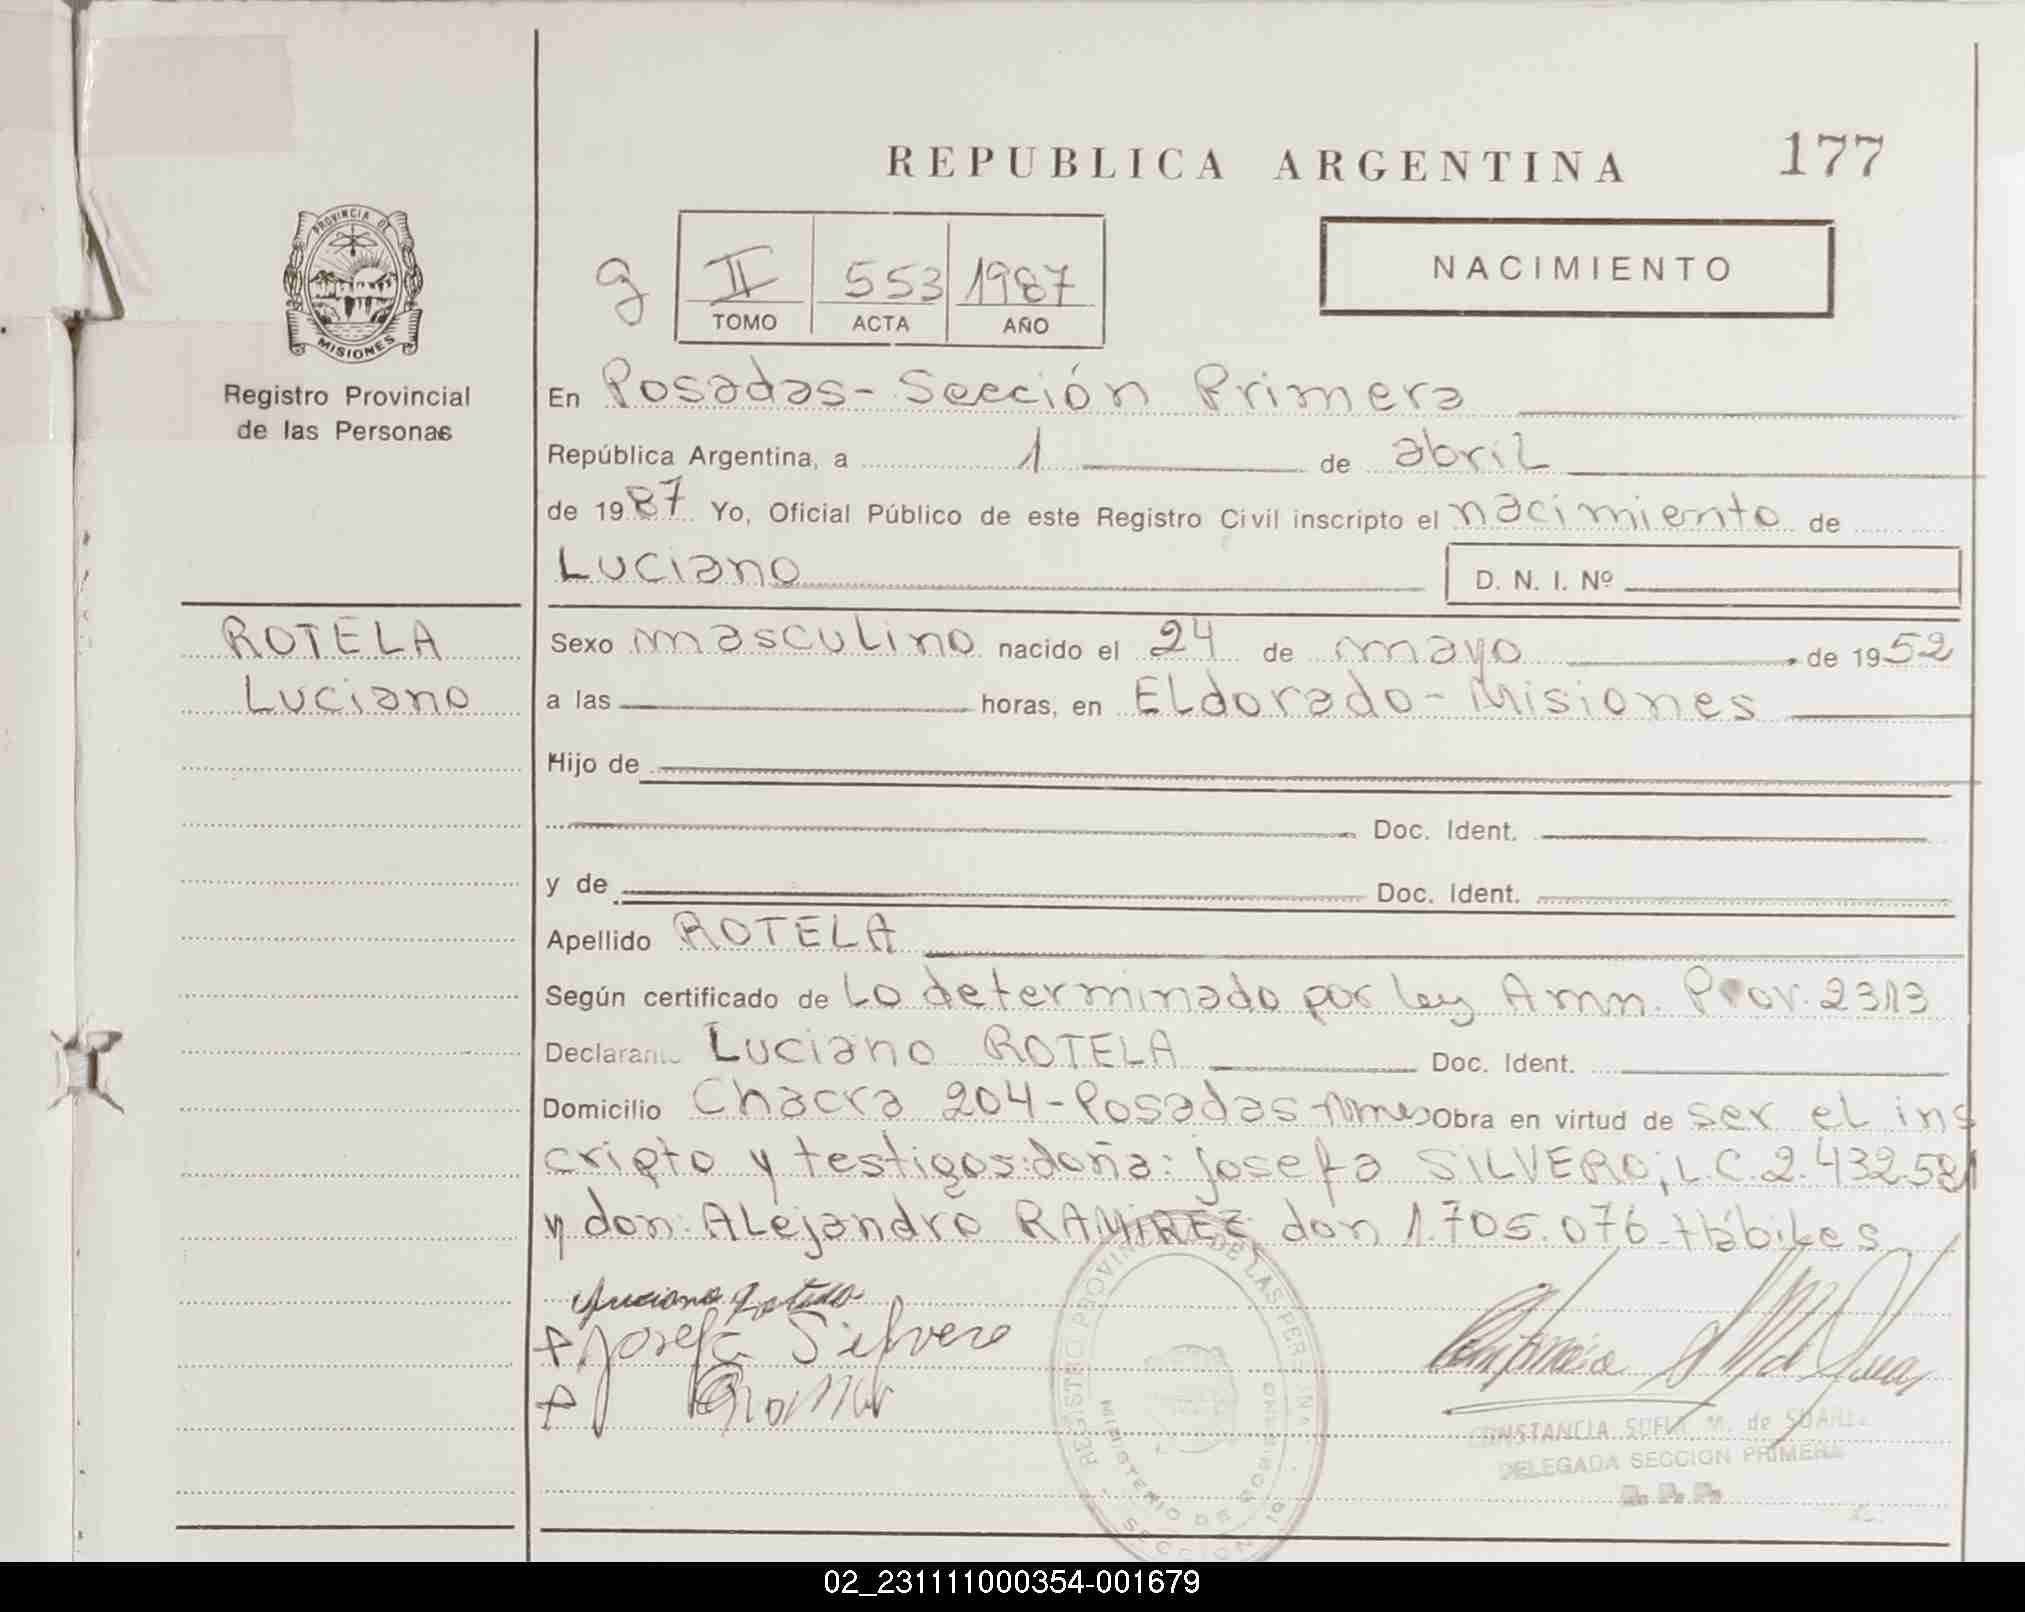 REPUBLICA ARGENTINA
177
PROVINCIA DE
MISIONES
Registro Provincial
de las Personas
g
II 553 1987
TOMO ACTA AÑO
NACIMIENTO
En Posadas - Sección Primera
República Argentina, a 1 de abril
de 1987 Yo, Oficial Público de este Registro Civil inscripto el nacimiento de
Luciano
D. N. I. Nº
ROTELA
Luciano
Sexo masculino nacido el 24 de mayo de 1952
a las horas, en ELdorado - Misiones
Hijo de
Doc. Ident.
y de Doc. Ident.
Apellido ROTELA
Según certificado de Lo determinado por ley Amn. Prov. 2313
Declarante Luciano ROTELA Doc. Ident.
Domicilio Chacra 204 - Posadas - Obra en virtud de ser el ins
cripto y testigos: doña: josefa SILVERO, L.C. 2.432.581
y don: ALejandro RAMIREZ don 1.705.076 - Hábiles
Luciano Rotela
+ Josefa Silvero
+
REGISTRO PROVINCIAL DE LAS PERSONAS
MINISTERIO DE GOBIERNO
SECCION 1a
CONSTANCIA SOFIA M. de SUAREZ
DELEGADA SECCION PRIMERA
02_231111000354-001679